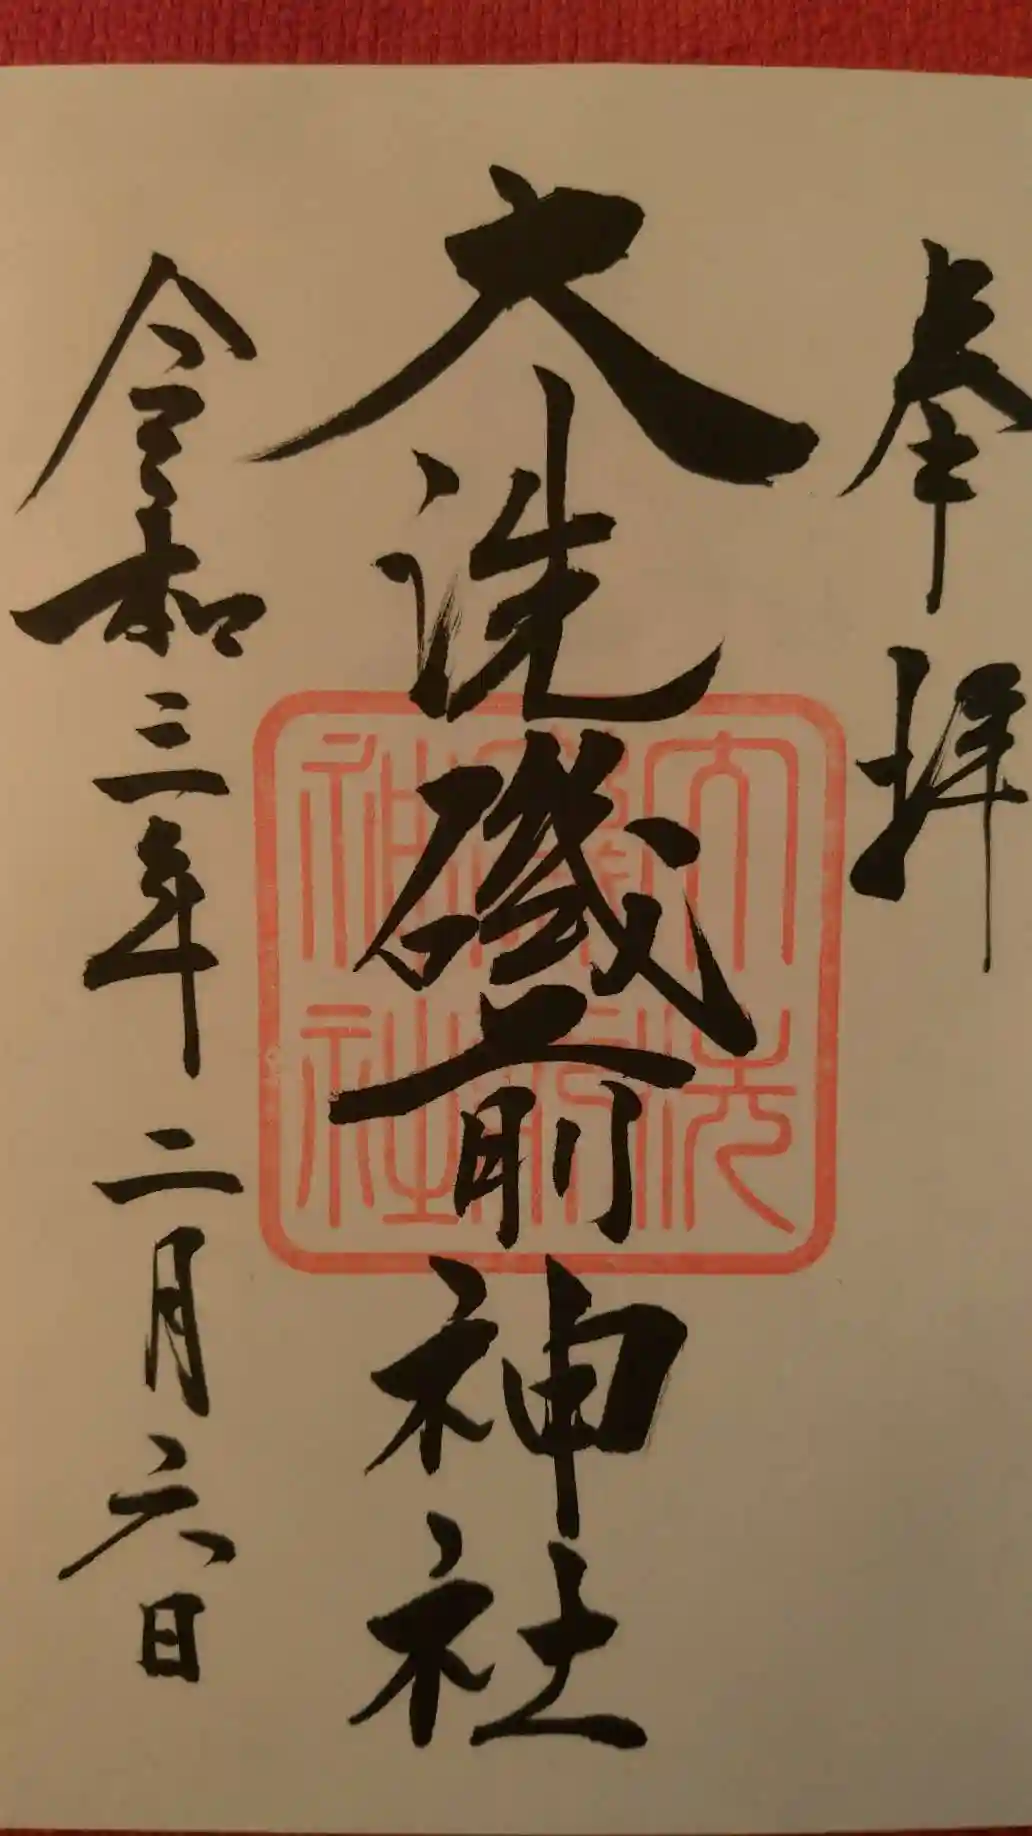 奉拝
大洗磯前神社
令和三年二月六日
大洗
磯前
神社